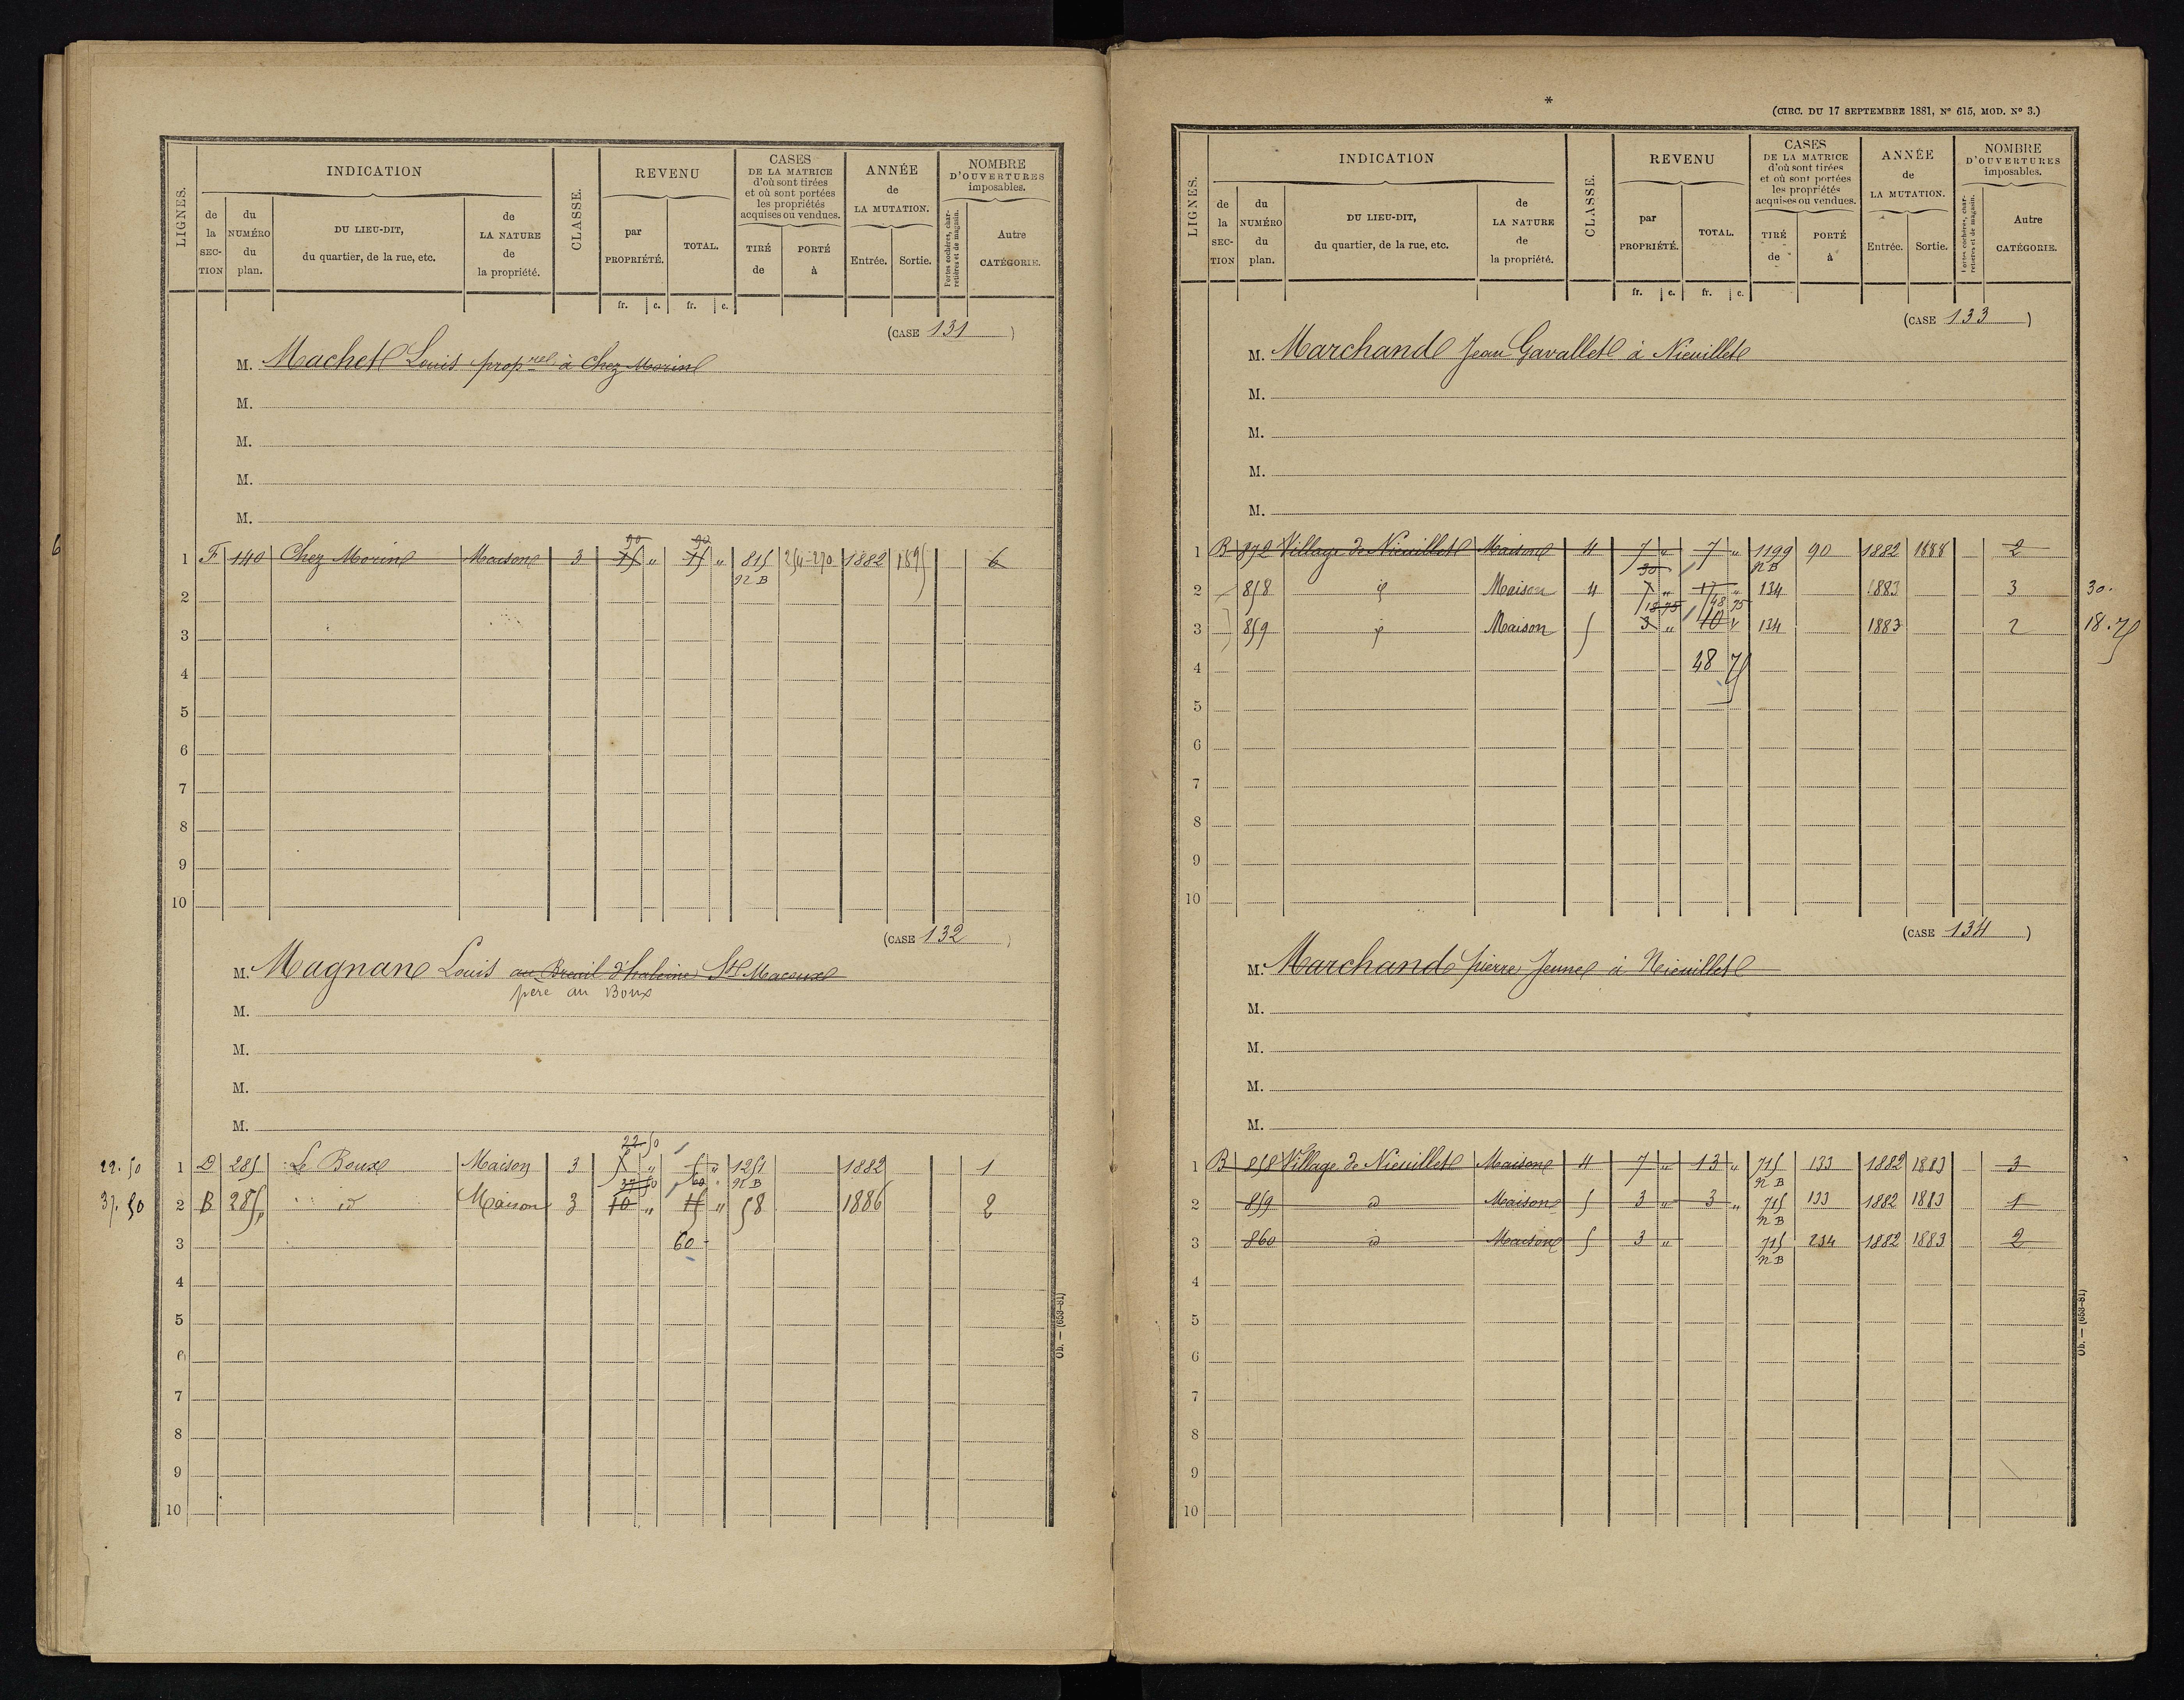 INDICATION
REVENU
CASES
DE LA MATRICE
d'où sont tirées
et où sont portées
les propriétés
acquises ou vendues.
ANNÉE
de
LA MUTATION.
NOMBRE
D'OUVERTURES
imposables.
LIGNES.
de
la
SEC-
TION
du
NUMÉRO
du
plan.
DU LIEU-DIT,
du quartier, de la rue, etc.
de
LA NATURE
de
la propriété.
CLASSE.
par
PROPRIÉTÉ.
TOTAL.
TIRÉ
de
PORTÉ
à
Entrée.
Sortie.
Portes cochères, char-
retières et de magasin.
Autre
CATÉGORIE.
fr. c. fr. c.
(CASE 131)
M. Machet Louis propre à Chez Morin
M.
M.
M.
M.
90 90
1 F 140 Chez Morin Maison 3 15 " 15 " 815 254-270 1882 1895 6
n B
2
3
4
5
6
7
8
9
10
(CASE 132)
M. Magnan Louis au Breuil d'haleine St Macoux
père au Boux
M.
M.
M.
M.
22 50
22.50 1 D 285 Le Boux Maison 3 5 " 5 " 1251 1882 1
37 50 60 n B
37.50 2 B 285p id Maison 3 10 " 15 " 58 1886 2
3 60 -
4
5
6
7
8
9
10
Ob. — (653-81)
*
(CIRC. DU 17 SEPTEMBRE 1881, No 615, MOD. No 3.)
INDICATION
REVENU
CASES
DE LA MATRICE
d'où sont tirées
et où sont portées
les propriétés
acquises ou vendues.
ANNÉE
de
LA MUTATION.
NOMBRE
D'OUVERTURES
imposables.
LIGNES.
de
la
SEC-
TION
du
NUMÉRO
du
plan.
DU LIEU-DIT,
du quartier, de la rue, etc.
de
LA NATURE
de
la propriété.
CLASSE.
par
PROPRIÉTÉ.
TOTAL.
TIRÉ
de
PORTÉ
à
Entrée.
Sortie.
Portes cochères, char-
retières et de magasin.
Autre
CATÉGORIE.
fr. c. fr. c.
(CASE 133)
M. Marchand Jean Gavallet à Nieuillet
M.
M.
M.
M.
1 B 872 Village de Nieuillet Maison 4 7 " 7 " 1199 90 1882 1888 2
30 n B
2 858 id Maison 4 7 " 17 " 134 1883 3 30.
18 75 48 75
3 859 id Maison 5 3 " 10 " 134 1883 2 18.75
4 48 75
5
6
7
8
9
10
(CASE 134)
M. Marchand pierre Jeune à Nieuillet
M.
M.
M.
M.
1 B 858 Village de Nieuillet Maison 4 7 " 13 " 715 133 1882 1883 3
n B
2 859 d Maison 5 3 " 3 " 715 133 1882 1883 1
n B
3 860 d Maison 5 3 " 715 234 1882 1883 2
n B
4
5
6
7
8
9
10
Ob. — (653-81)